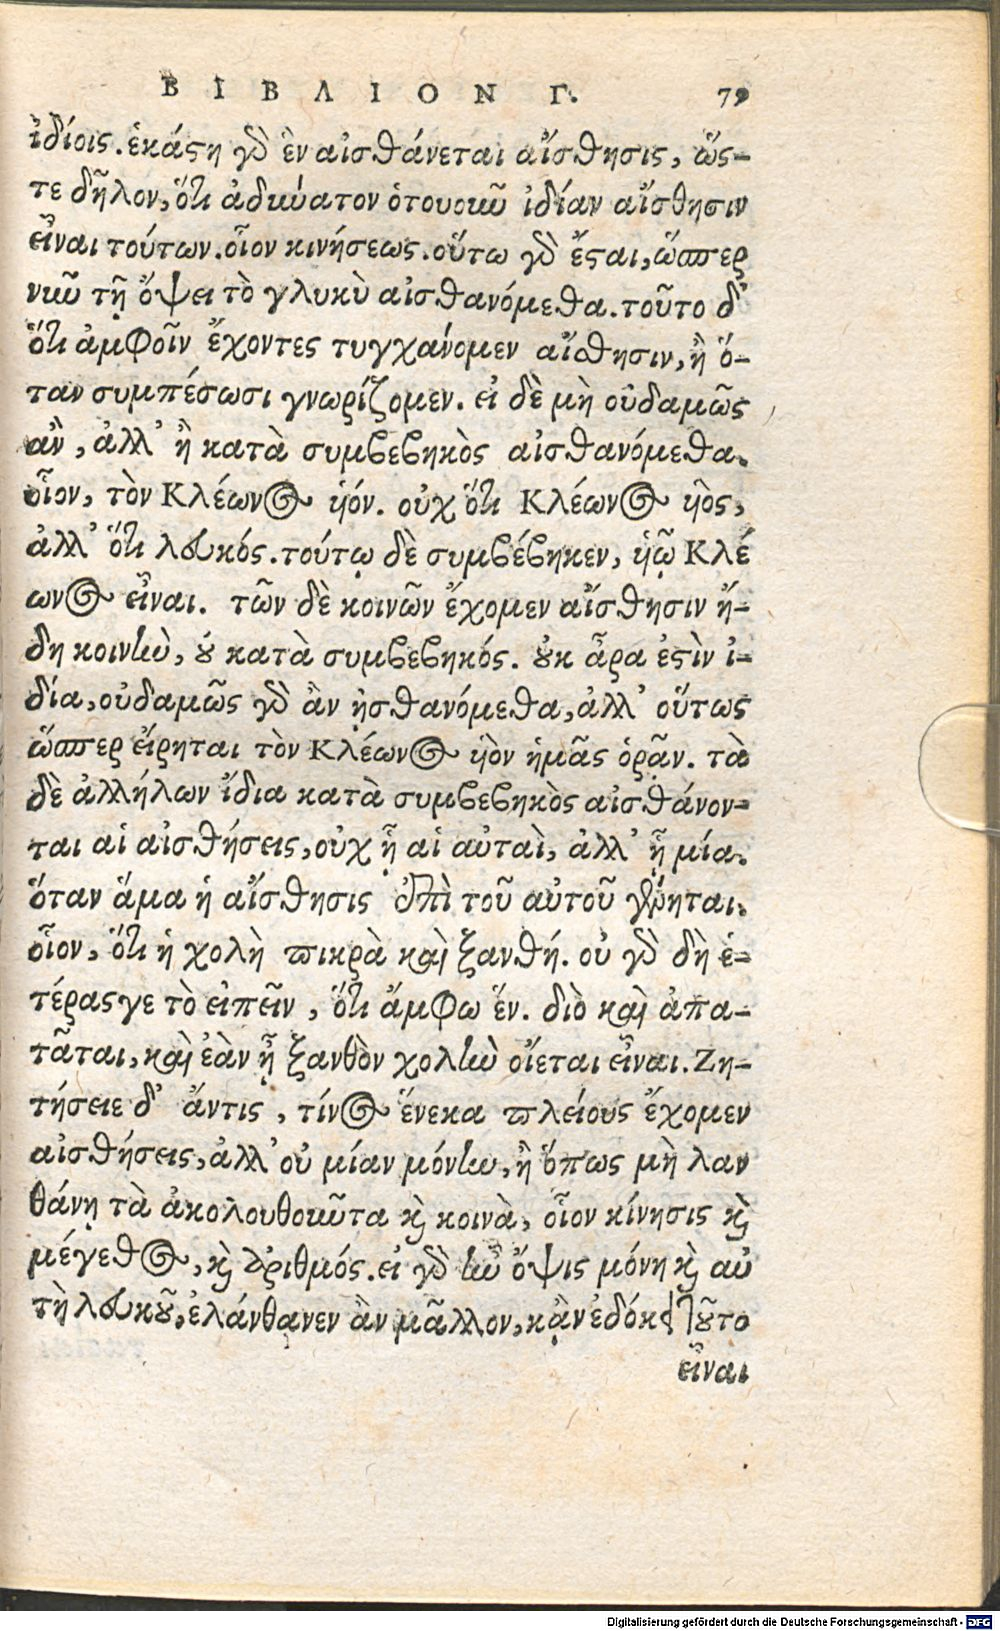 ΒΙΒΛΙΟΝ Γ. 79
ἰδίοις. ἑκάστη γὰρ ἓν αἰσθάνεται αἴσθησις, ὥς-
τε δῆλον, ὅτι ἀδύνατον ὁτουοῦν ἰδίαν αἴσθησιν
εἶναι τούτων. οἷον κινήσεως. οὕτω γὰρ ἔσται, ὥσπερ
νῦν τῇ ὄψει τὸ γλυκὺ αἰσθανόμεθα. τοῦτο δ'
ὅτι ἀμφοῖν ἔχοντες τυγχάνομεν αἴσθησιν, ἢ ὅ-
ταν συμπέσωσι γνωρίζομεν. εἰ δὲ μὴ οὐδαμῶς
ἂν, ἀλλ' ἢ κατὰ συμβεβηκὸς αἰσθανόμεθα.
οἷον, τὸν Κλέωνος ὑόν. οὐχ ὅτι Κλέωνος ὑὸς,
ἀλλ' ὅτι λευκός. τούτῳ δὲ συμβέβηκεν, ὑῷ Κλέ
ωνος εἶναι. τῶν δὲ κοινῶν ἔχομεν αἴσθησιν ἤ-
δη κοινὴν, οὐ κατὰ συμβεβηκός. οὐκ ἄρα ἐστὶν ἰ-
δία, οὐδαμῶς γὰρ ἂν ᾐσθανόμεθα, ἀλλ' οὕτως
ὥσπερ εἴρηται τὸν Κλέωνος ὑὸν ἡμᾶς ὁρᾷν. τὰ
δὲ ἀλλήλων ἴδια κατὰ συμβεβηκὸς αἰσθάνον-
ται αἱ αἰσθήσεις, οὐχ ᾗ αἱ αὐταὶ, ἀλλ' ᾗ μία.
ὅταν ἅμα ἡ αἴσθησις ἐπὶ τοῦ αὐτοῦ γένηται.
οἷον, ὅτι ἡ χολὴ πικρὰ καὶ ξανθή. οὐ γὰρ δὴ ἑ-
τέρας γε τὸ εἰπεῖν, ὅτι ἄμφω ἕν. διὸ καὶ ἀπα-
τᾶται, καὶ ἐὰν ᾖ ξανθὸν χολὴν οἴεται εἶναι. Ζη-
τήσειε δ' ἄντις, τίνος ἕνεκα πλείους ἔχομεν
αἰσθήσεις, ἀλλ' οὐ μίαν μόνην, ἢ ὅπως μὴ λαν
θάνῃ τὰ ἀκολουθοῦντα καὶ κοινὰ, οἷον κίνησις καὶ
μέγεθος, καὶ ἀριθμός. εἰ γὰρ ἦν ὄψις μόνη καὶ αὐ
τὴ λευκοῦ, ἐλάνθανεν ἂν μᾶλλον, κᾂν ἐδόκει ταυτο
εἶναι
Digitalisierung gefördert durch die Deutsche Forschungsgemeinschaft - DFG